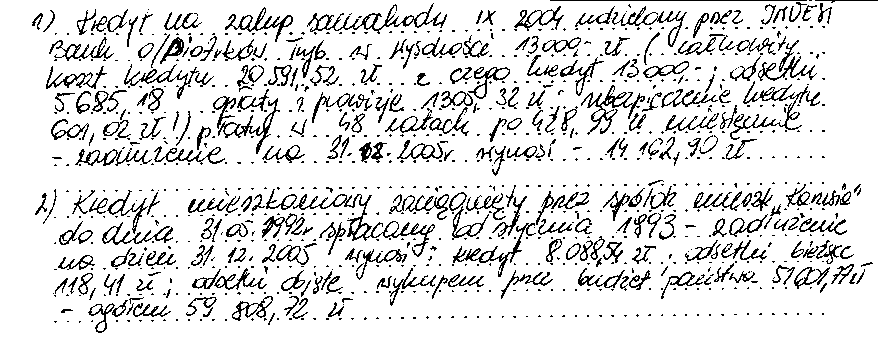 1) Kredyt na zakup samochodu IX 2004 udzielony przez INVEST
Bank o/Piotrków Tryb. w wysokości 13000,- zł (całkowity
koszt kredytu 20 591,52 zł z czego kredyt 13 000,- ; odsetki
5 685,18 opłaty i prowizje 1305,32 zł ; ubezpieczenie kredytu
601,02 zł !) płatny w 48 ratach po 428,99 zł miesięcznie
- zadłużenie na 31.12.2005r wynosi - 14 162,90 zł
2) Kredyt mieszkaniowy zaciągnięty przez spółdz. mieszk.
do dnia 31.05.1992r spłacany od stycznia 1893 - zadłużenie
na dzień 31.12.2005 wynosi : kredyt 8.088,54 zł ; odsetki bieżące
118,41 zł ; odsetki objęte wykupem przez budżet państwa 51601,77 zł
- ogółem 59 808,72 zł